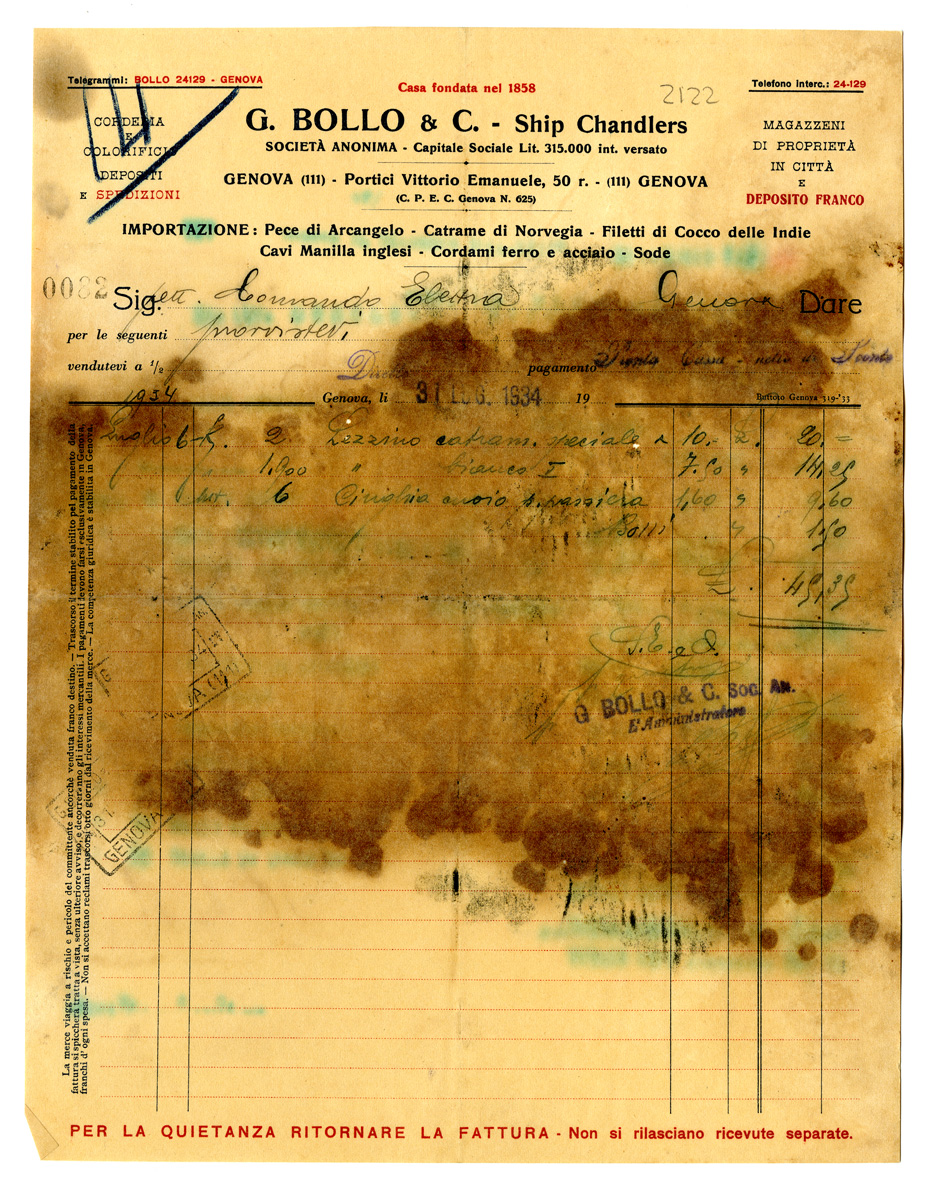 Telegrammi: BOLLO 24129 - GENOVA
Casa fondata nel 1858
2122
Telefono interc.: 24-129
CORDERIA
E
COLORIFICIO
DEPOSITI
E SPEDIZIONI
G. BOLLO & C. - Ship Chandlers
SOCIETÀ ANONIMA - Capitale Sociale Lit. 315.000 int. versato
GENOVA (111) - Portici Vittorio Emanuele, 50 r. - (111) GENOVA
(C. P. E. C. Genova N. 625)
MAGAZZENI
DI PROPRIETÀ
IN CITTÀ
E
DEPOSITO FRANCO
IMPORTAZIONE: Pece di Arcangelo - Catrame di Norvegia - Filetti di Cocco delle Indie
Cavi Manilla inglesi - Cordami ferro e acciaio - Sode
0032 Sig. Comando Elettra Genova Dare
per le seguenti provvistevi
vendutevi a 1/2 pagamento
1934 Genova, li 31 LUG. 1934 19 Buffoto Genova 319-'33
Luglio 6 K. 2 Lezzino catram. speciale a 10.- £. 20.=
1.900 " bianco I 7.50 " 14,25
6 Cinghia cuoio 1,60 " 9,60
Bolli " 1,50
£ 45,35
S. E. e O.
G BOLLO & C. Soc. An.
L'Amministratore
GENOVA (111)
GENOVA
La merce viaggia a rischio e pericolo del committente ancorchè venduta franco destino. — Trascorso il termine stabilito pel pagamento della
fattura si spiccherà tratta a vista, senza ulteriore avviso, e decorreranno gli interessi mercantili. I pagamenti devono farsi esclusivamente in Genova
franchi d'ogni spesa. — Non si accettano reclami trascorsi otto giorni dal ricevimento della merce. — La competenza giuridica è stabilita in Genova.
PER LA QUIETANZA RITORNARE LA FATTURA - Non si rilasciano ricevute separate.